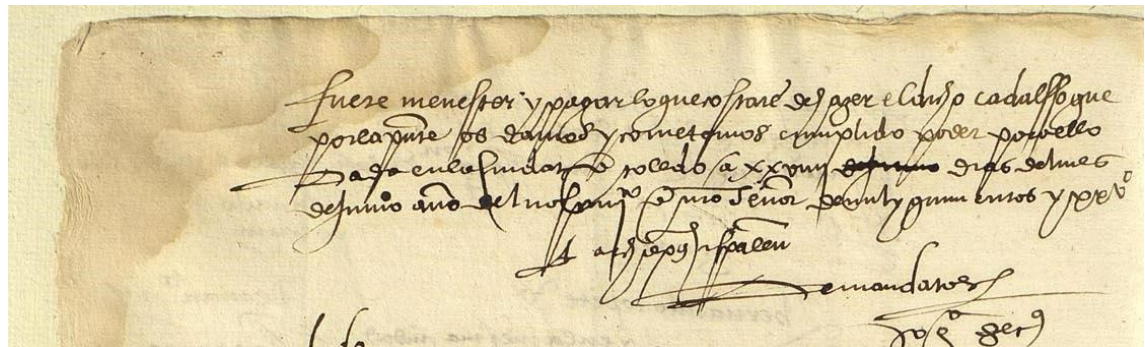 fuere menester y pagar lo que costare desazer el dicho cadalsso que
por la presente os damos y cometemos cumplido poder por ello
Dada en la cibdad de toledo a xxviii dias del mes
de junio año del nascimi° de nro Señor de mill y quinientos y xxv°
A archiepus ispalen
De mandato
secº